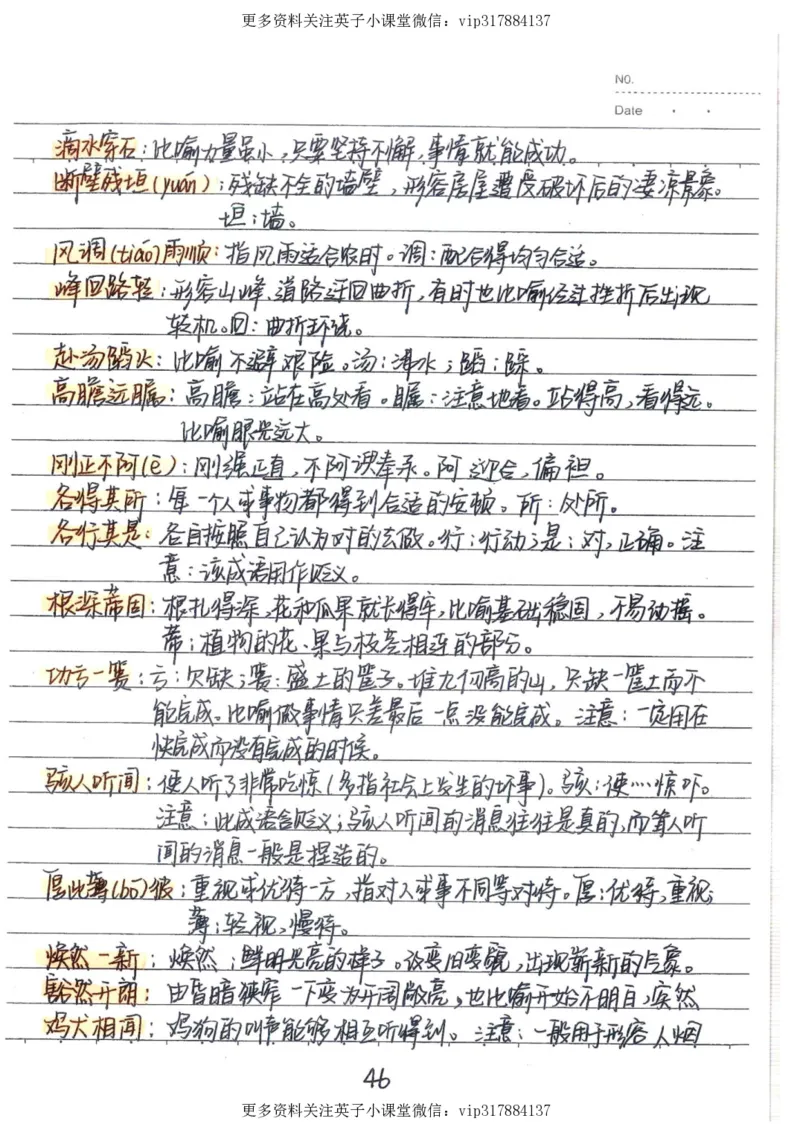 更多资料关注英子小课堂微信：vip317884137
NO.
Date
滴水穿石：比喻力量虽小，只要坚持不懈，事情就能成功。
断壁残垣(yuán)：残缺不全的墙壁，形容房屋遭受破坏后的凄凉景象。
垣：墙。
风调(tiáo)雨顺：指风雨适合农时。调：配合得均匀合适。
峰回路转：形容山峰、道路迂回曲折，有时也比喻经过挫折后出现
转机。回：曲折环绕。
赴汤蹈火：比喻不避艰险。汤：沸水；蹈：踩。
高瞻远瞩：高瞻：站在高处看。瞩：注意地看。站得高，看得远。
比喻眼光远大。
刚正不阿(ē)：刚强正直，不阿谀奉承。阿：迎合，偏袒。
各得其所：每一个人或事物都得到合适的安顿。所：处所。
各行其是：各自按照自己认为对的去做。行：行动；是：对，正确。注
意：该成语用作贬义。
根深蒂固：根扎得深，花和瓜果就长得牢，比喻基础稳固，不易动摇。
蒂：植物的花、果与枝茎相连的部分。
功亏一篑：亏：欠缺；篑：盛土的筐子。堆九仞高的山，只缺一筐土而不
能完成。比喻做事情只差最后一点没能完成。注意：一定用在
快完成而没有完成的时候。
骇人听闻：使人听了非常吃惊(多指社会上发生的坏事)。骇：使……惊吓。
注意：此成语含贬义；骇人听闻的消息往往是真的，而耸人听
闻的消息一般是捏造的。
厚此薄(bó)彼：重视或优待一方，指对人或事不同等对待。厚：优待，重视；
薄：轻视，慢待。
焕然一新：焕然：鲜明光亮的样子。改变旧面貌，出现崭新的气象。
豁然开朗：由昏暗狭窄一下变为开阔敞亮，也比喻开始不明白，突然
鸡犬相闻：鸡狗的叫声能够相互听得到。注意：一般用于形容人烟
46
更多资料关注英子小课堂微信：vip317884137